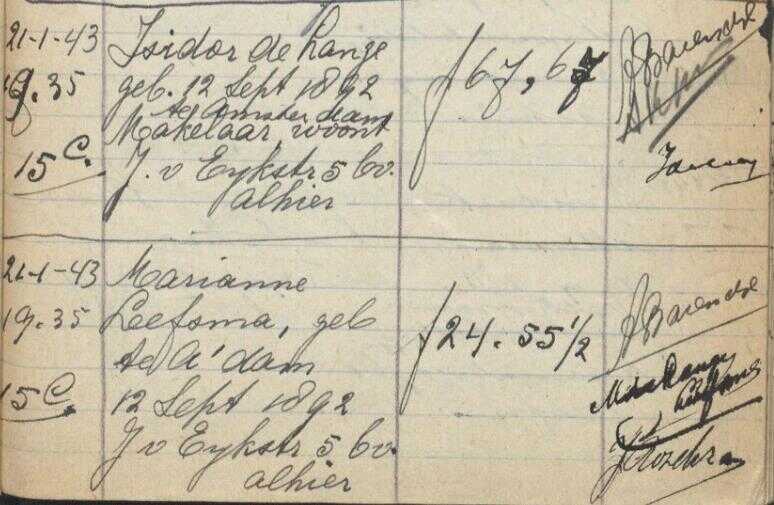 21-1-43 Isidor de Lange
19.35 geb. 12 Sept 1892 f 67,67 J Barendse
te Amsterdam
Makelaar woont
15 C. J. v Eykstr 5 bv.
alhier
21-1-43 Marianne
19.35 Leefsma, geb f 24.55 1/2 J Barendse
te A'dam
15 C. 12 Sept 1892
J v Eykstr 5 bv.
alhier